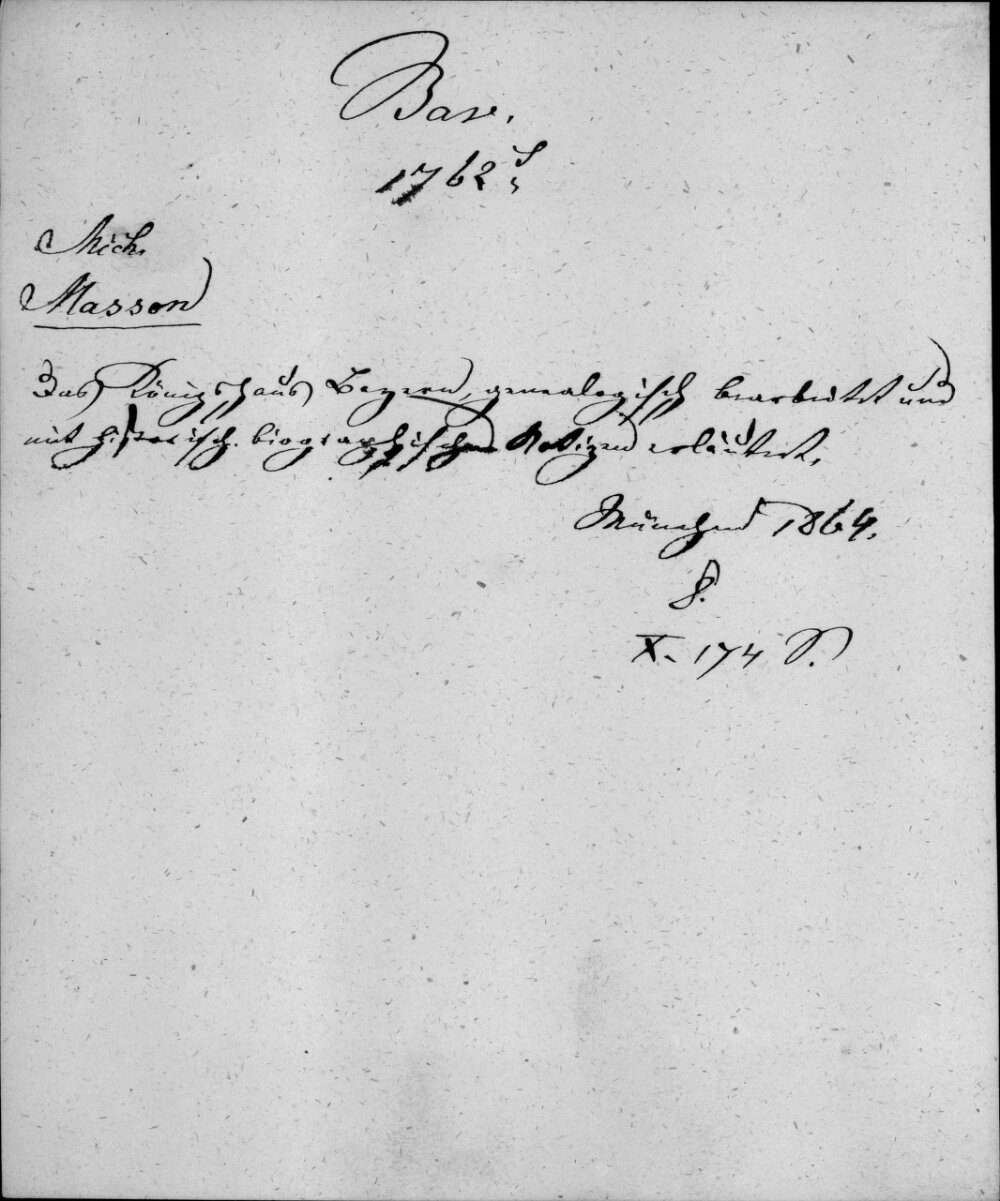 Bav.
1762 s
Mich.
Masson
Das Königshaus Bayern, genealogisch bearbeitet und
mit historisch-biographischen Notizen erläutert.
München 1864.
8.
X. 174 S.